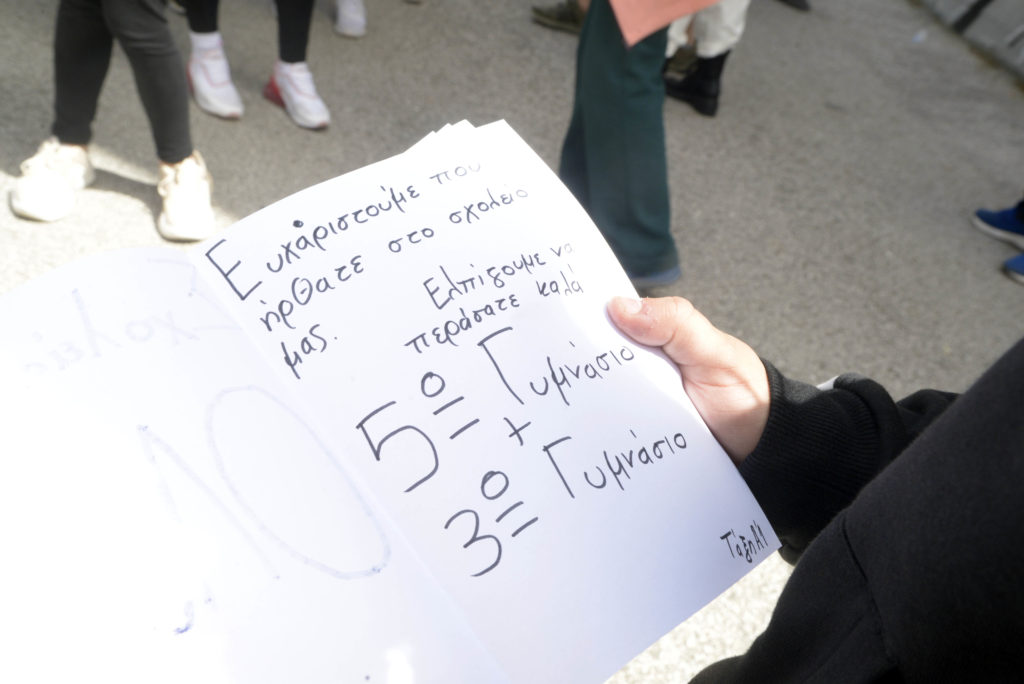 Ευχάριστούμε που
ήρθατε στο σχολείο
μας.
Ελπίζουμε να
περάσατε καλά
5º Γυμνάσιο
+
3º Γυμνάσιο
Τάξη Α1